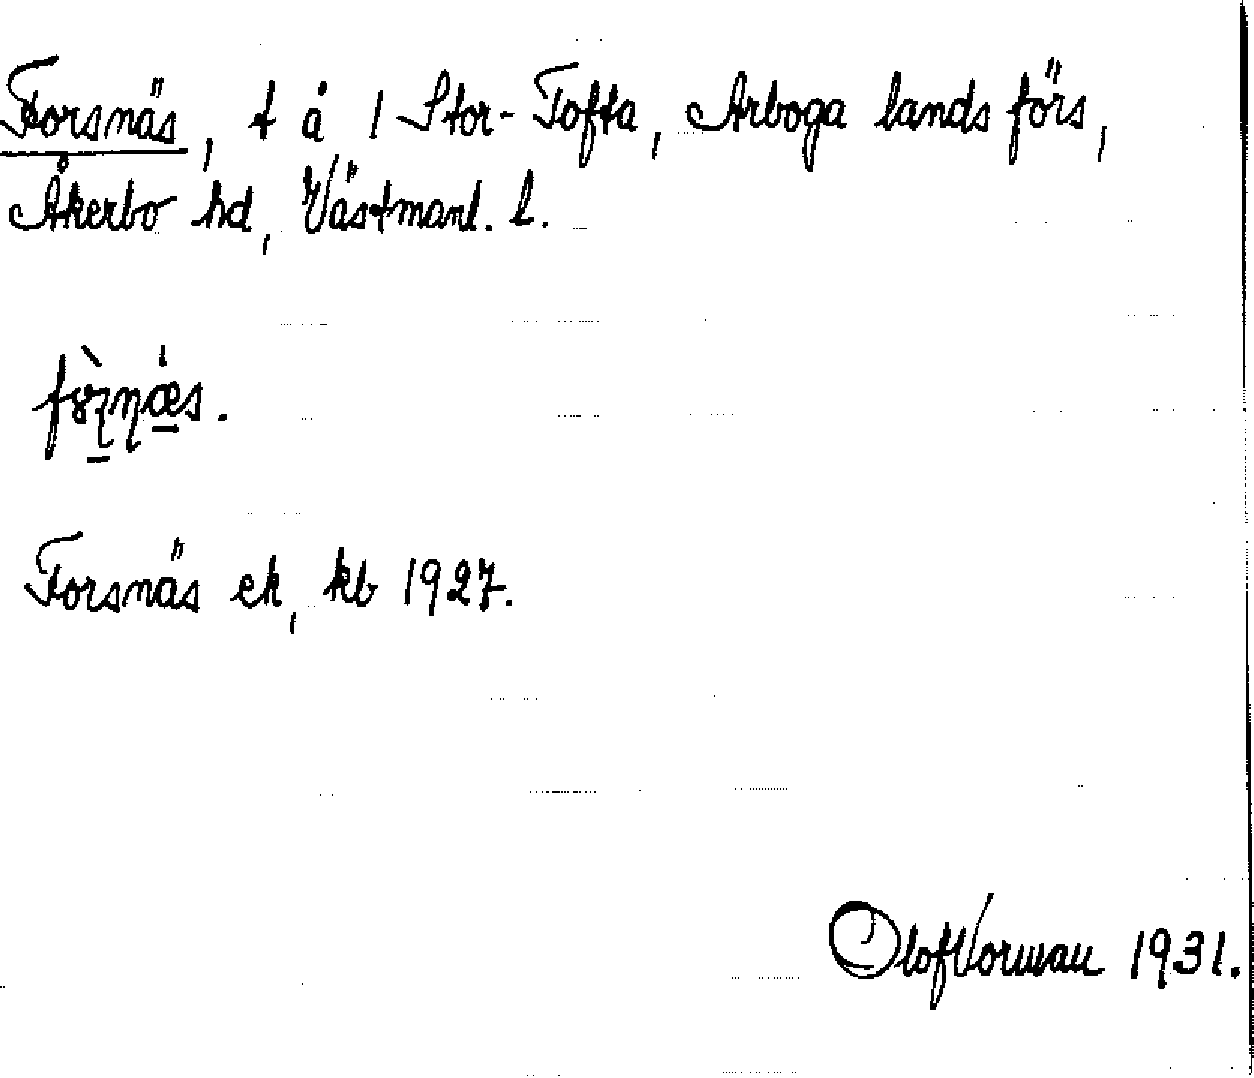 Forsnäs, t å 1 Stor-Tofta, Arboga lands förs,
Åkerbo hd, Västmanl. l.
Forsnäs ek, kb 1927.
Olof Vorman 1931.